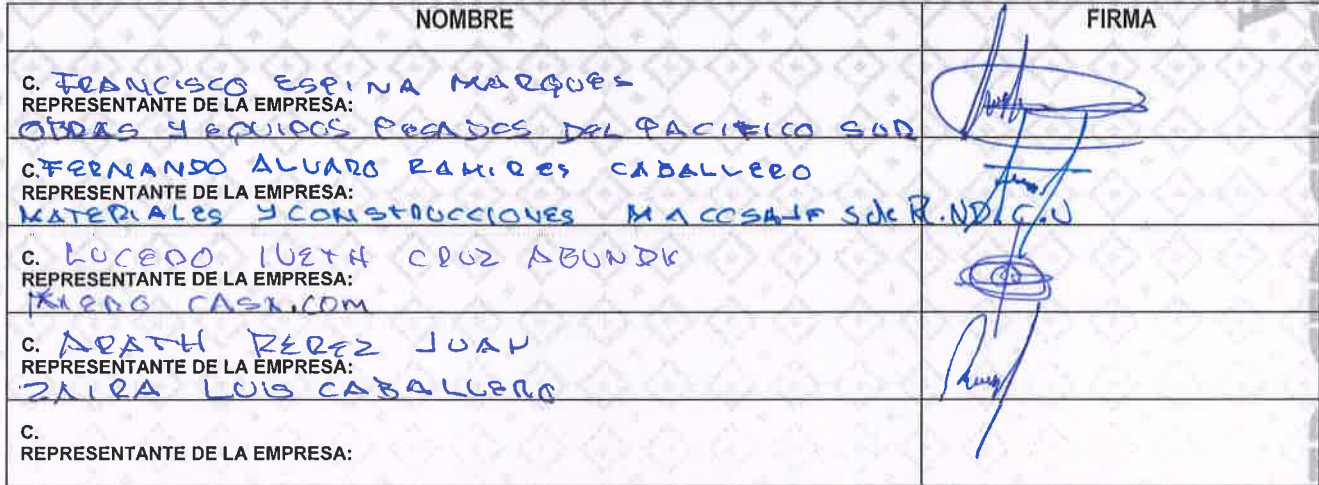 NOMBRE FIRMA
C. FRANCISCO ESPINA MARQUES
REPRESENTANTE DE LA EMPRESA:
OBRAS Y EQUIPOS PESADOS DEL PACIFICO SUR
C. FERNANDO ALVARO RAMIRES CABALLERO
REPRESENTANTE DE LA EMPRESA:
MATERIALES Y CONSTRUCCIONES S de R.
C. LUCERO IVETH CRUZ
REPRESENTANTE DE LA EMPRESA:
CASA.COM
C. ARATH PEREZ JUAN
REPRESENTANTE DE LA EMPRESA:
ZAIRA LUIS CABALLERO
C.
REPRESENTANTE DE LA EMPRESA: